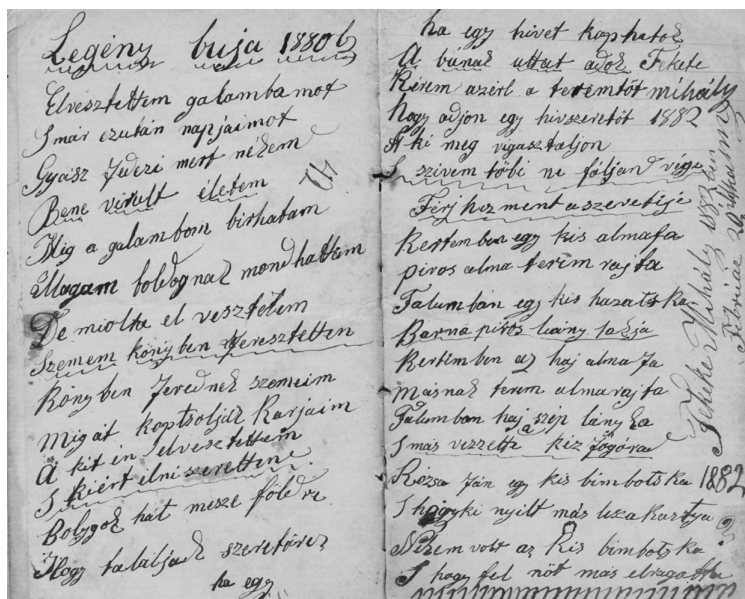 Legény buja 1880b
Elvesztettem galambamot
S már ezután napjaimot
Gyász fedezi mert nékem
Bene virult életem
Mig a galambom birhatam
Magam boldognak mondhattam
De miolta el vesztétem
Szemem könyben keresztettem
Könyben ferednek szemeim
Migát kaptsoljak Karjaim
A kit én elvesztettem
S kiért elni szerettem
Bolygok hát mesze földre
Hogy találjak szeretőre
ha egy
ha egy hivet kaphatok
A búnak uttat adok Fekete
Kérem azért a teremtőt mihály
hogy adjon egy hivszeretőt 1882
A ki meg vigasztaljon
S szivem töbé ne fáljan vége
Férj hez ment a szeretője
Kertemben egy kis almafa
piros alma terem rajta
Falumbán egy kis hazatska
Barna piros leány lakja
Kertemben az haj alma fa
másnak terem almarajta
Falumban haj a szép lányka
S más vezzette kéz fogóra
Rózsa fán egy kis bimbotska 1882
S hogy ki nyilt más leszakasztya
Nékem volt az kis bimbotska
S hogy fel nőt más elragatta
Fekete Mihály 1882ben
Február 20